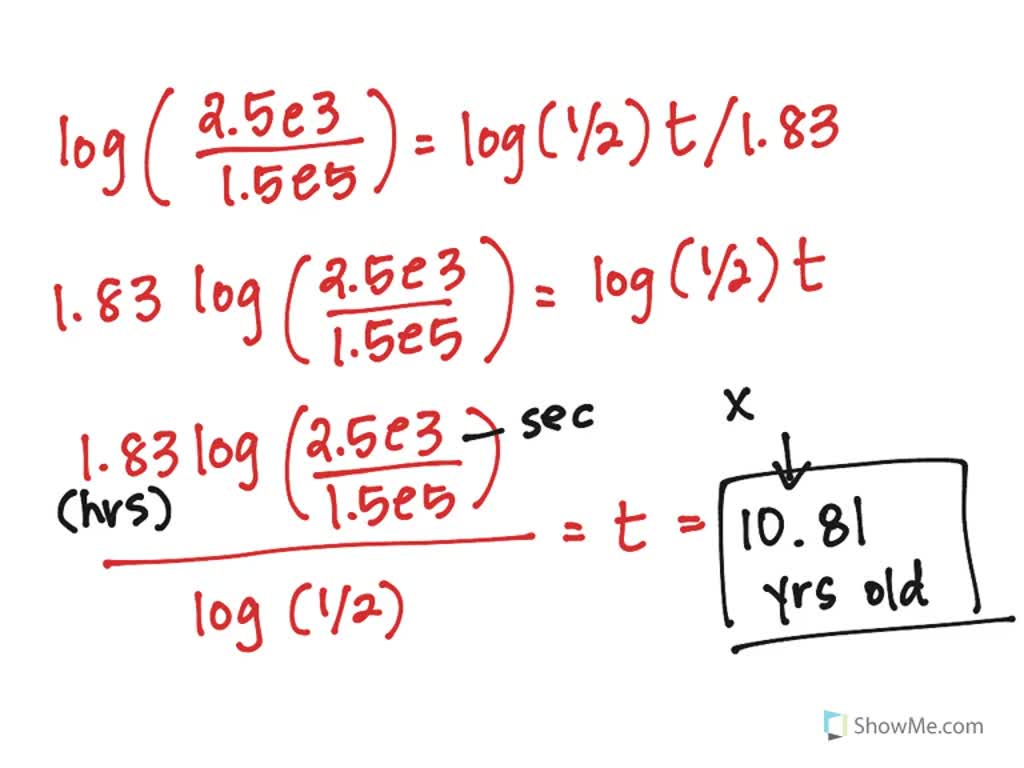 log ( 2.5e3 / 1.5e5 ) = log (1/2) t / 1.83
1.83 log ( 2.5e3 / 1.5e5 ) = log (1/2) t
x
1.83 log ( 2.5e3 / 1.5e5 ) — sec
(hrs)
log (1/2)
= t = 10.81
yrs old
ShowMe.com